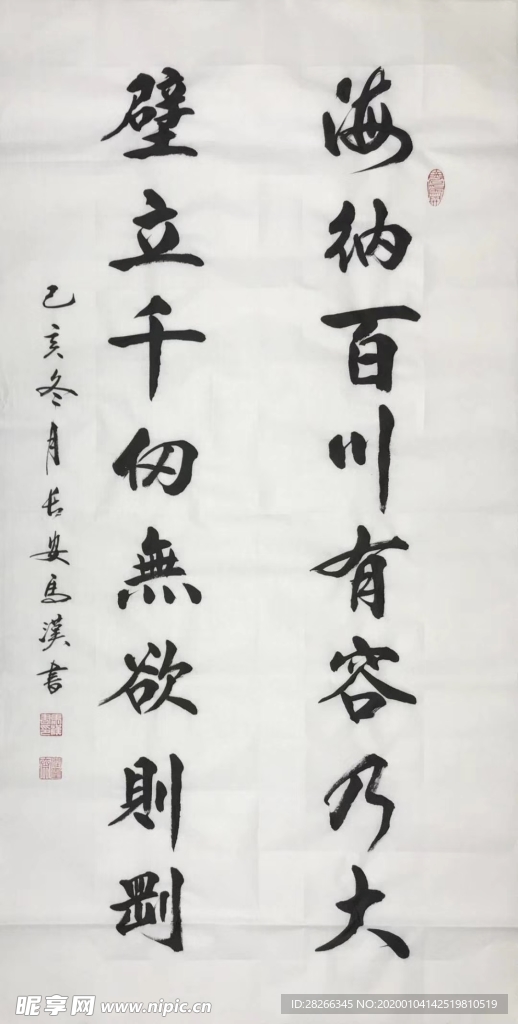 海納百川有容乃大
壁立千仞無欲則剛
己亥冬月長安馬漢書
昵享网 www.nipic.cn
ID:28266345 NO:20200104142519810519